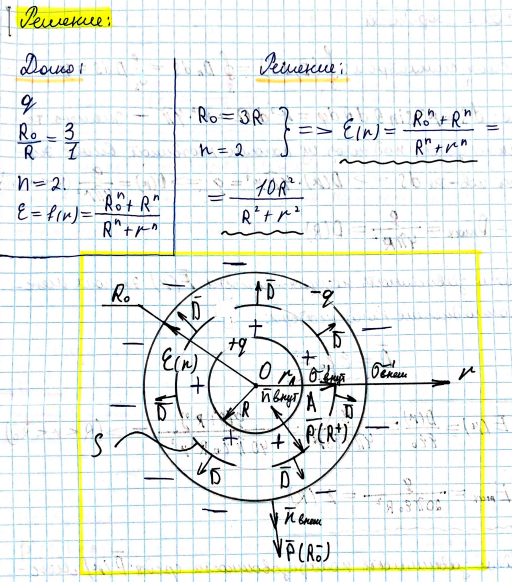 Решение:
Дано:
q
R₀/R = 3/1
n = 2.
ε = f(r) = (R₀ⁿ + Rⁿ)/(Rⁿ + rⁿ)
Решение:
R₀ = 3R
n = 2
} => ε(r) = (R₀ⁿ + Rⁿ)/(Rⁿ + rⁿ) =
= 10R²/(R² + r²)
R₀
D̄
D̄
-q
D̄
+q
ε(r)
O
r
σ'внут
σ'внеш
r
n̄внут
D̄
R
A
D̄
P̄(R⁺)
S
D̄
D̄
n̄внеш
P̄(R₀⁻)